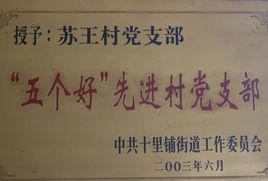 授予：苏王村党支部
“五个好”先进村党支部
中共十里铺街道工作委员会
二00三年六月